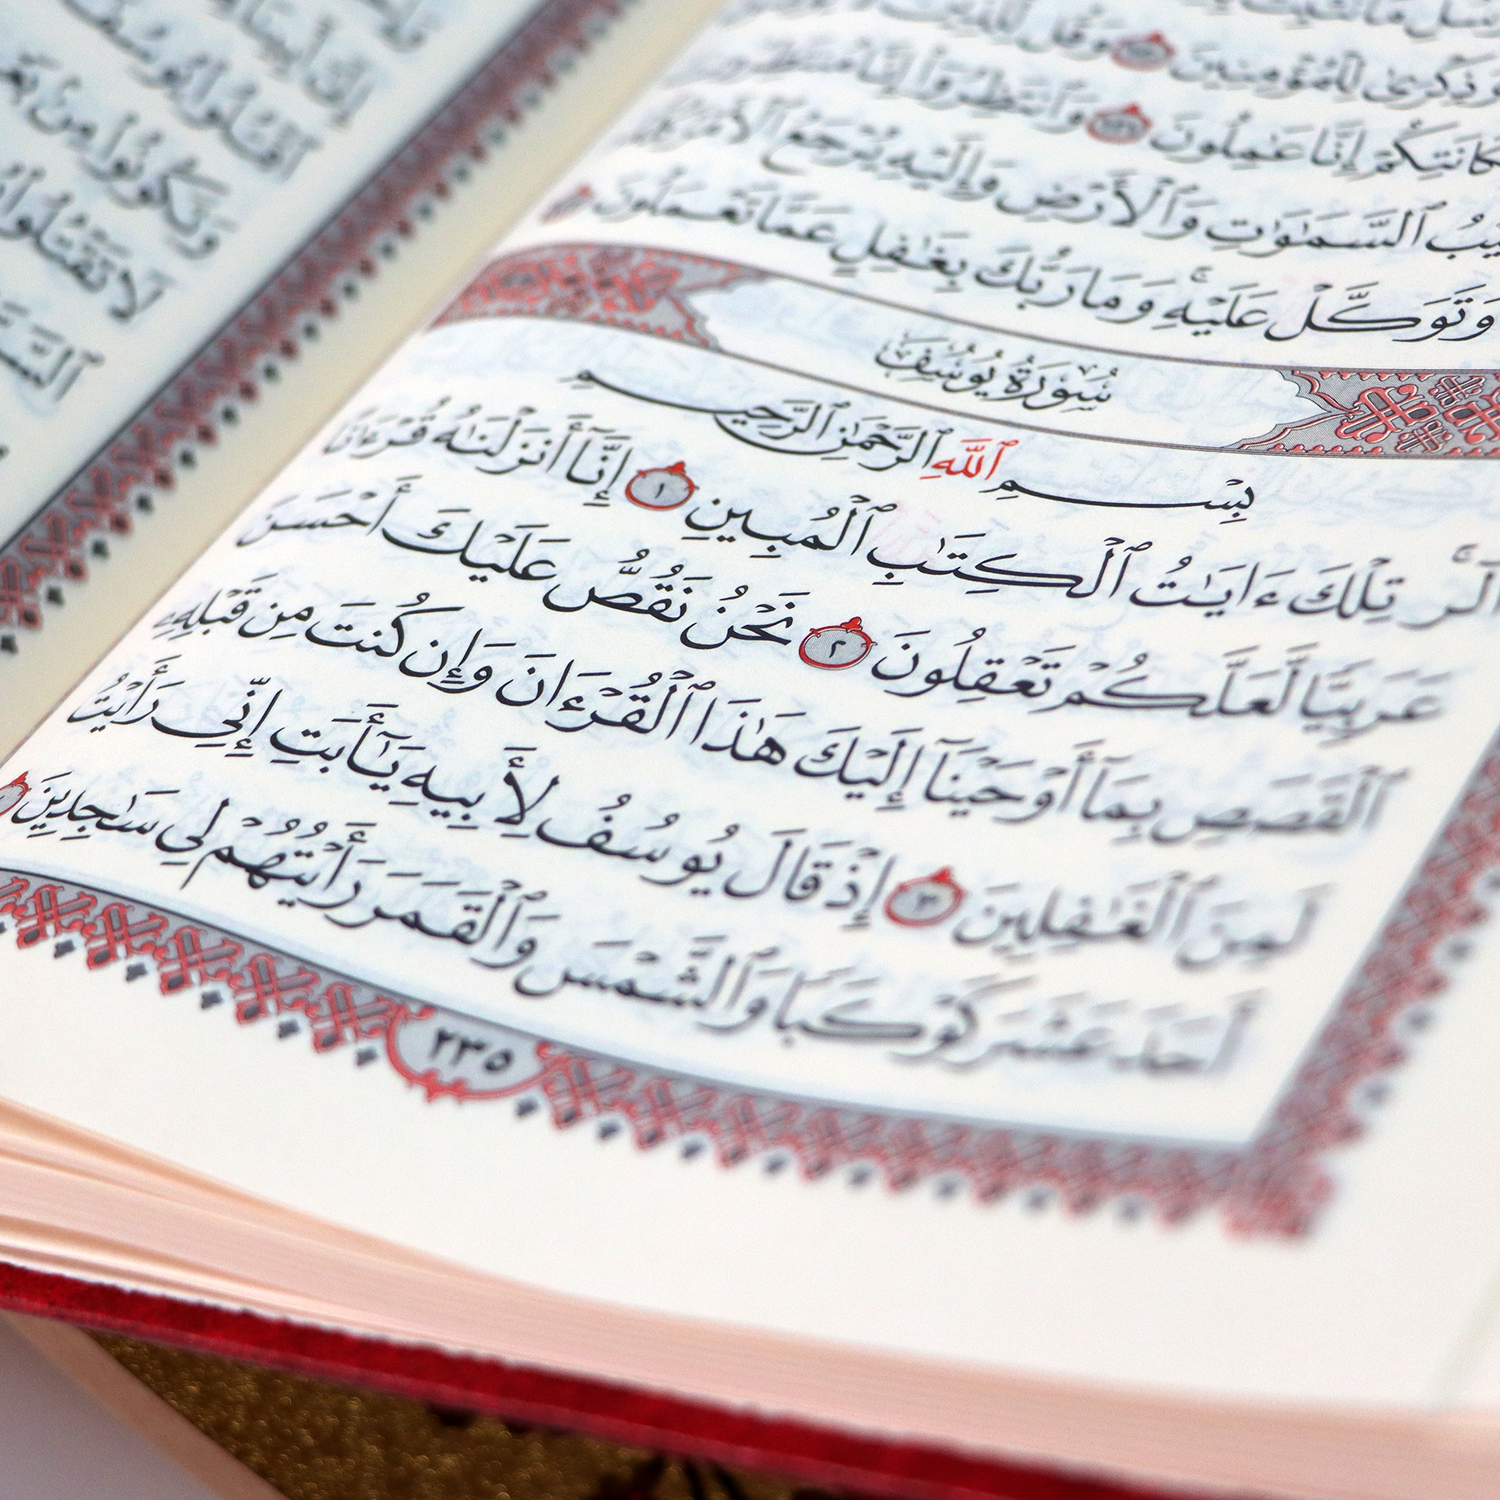 وَذِكْرَىٰ لِلْمُؤْمِنِينَ ۝ وَقُل لِّلَّذِينَ
مَكَانَتِكُمْ إِنَّا عَـٰمِلُونَ ۝ وَٱنتَظِرُوٓا۟ إِنَّا مُنتَظِرُونَ
غَيْبُ ٱلسَّمَـٰوَٰتِ وَٱلْأَرْضِ وَإِلَيْهِ يُرْجَعُ ٱلْأَمْرُ كُلُّهُۥ
وَتَوَكَّلْ عَلَيْهِ ۚ وَمَا رَبُّكَ بِغَـٰفِلٍ عَمَّا تَعْمَلُونَ
سُورَةُ يُوسُفَ
بِسْمِ ٱللَّهِ ٱلرَّحْمَـٰنِ ٱلرَّحِيمِ
الٓر ۚ تِلْكَ ءَايَـٰتُ ٱلْكِتَـٰبِ ٱلْمُبِينِ ١ إِنَّآ أَنزَلْنَـٰهُ قُرْءَٰنًا
عَرَبِيًّا لَّعَلَّكُمْ تَعْقِلُونَ ٢ نَحْنُ نَقُصُّ عَلَيْكَ أَحْسَنَ
ٱلْقَصَصِ بِمَآ أَوْحَيْنَآ إِلَيْكَ هَـٰذَا ٱلْقُرْءَانَ وَإِن كُنتَ مِن قَبْلِهِۦ
لَمِنَ ٱلْغَـٰفِلِينَ ٣ إِذْ قَالَ يُوسُفُ لِأَبِيهِ يَـٰٓأَبَتِ إِنِّى رَأَيْتُ
أَحَدَ عَشَرَ كَوْكَبًا وَٱلشَّمْسَ وَٱلْقَمَرَ رَأَيْتُهُمْ لِى سَـٰجِدِينَ
٢٣٥
ٱقْتُلُوا۟ يُوسُفَ
وَتَكُونُوا۟ مِنۢ بَعْدِهِۦ
لَا تَقْتُلُوا۟